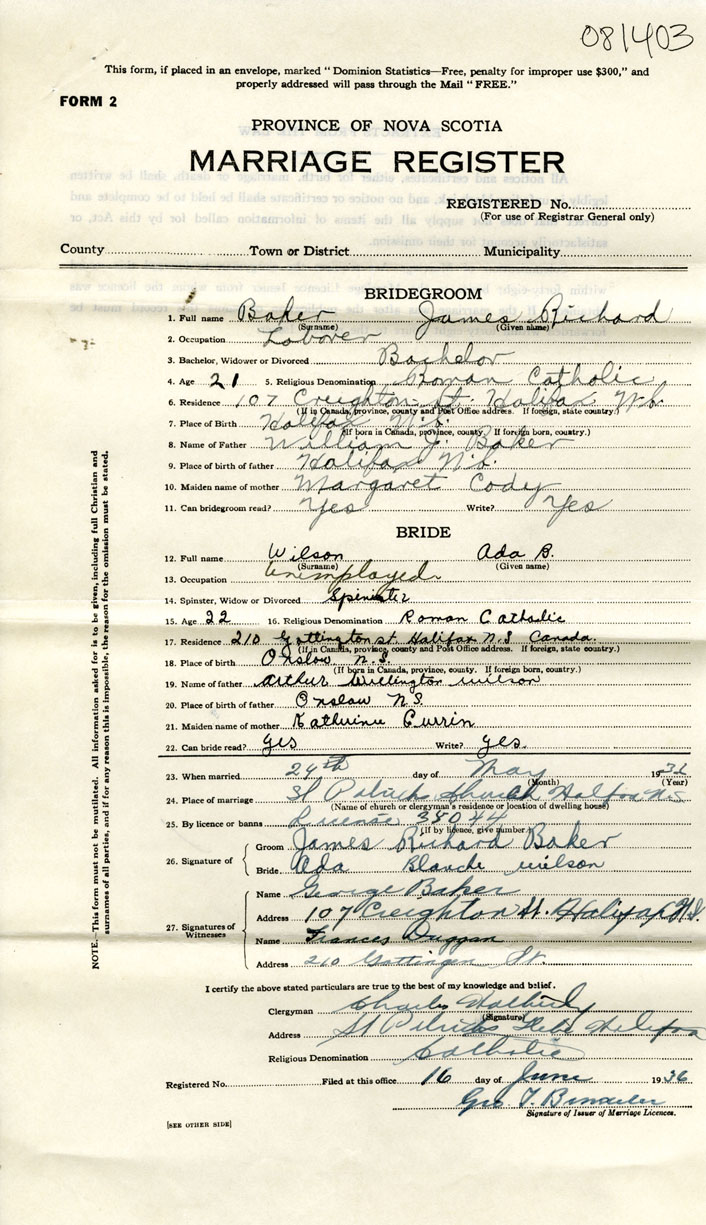 081403
This form, if placed in an envelope, marked "Dominion Statistics—Free, penalty for improper use $300," and
properly addressed will pass through the Mail "FREE."
FORM 2
PROVINCE OF NOVA SCOTIA
MARRIAGE REGISTER
REGISTERED No.
(For use of Registrar General only)
County Town or District Municipality
BRIDEGROOM
1. Full name Baker James Richard
(Surname) (Given name)
2. Occupation Laborer
3. Bachelor, Widower or Divorced Bachelor
4. Age 21 5. Religious Denomination Roman Catholic
6. Residence 107 Creighton St. Halifax N.S.
(If in Canada, province, county and Post Office address. If foreign, state country.)
7. Place of Birth Halifax N.S.
(If born in Canada, province, county. If foreign born, country.)
8. Name of Father William J. Baker
9. Place of birth of father Halifax N.S.
10. Maiden name of mother Margaret Cody
11. Can bridegroom read? Yes Write? Yes
BRIDE
12. Full name Wilson Ada B.
(Surname) (Given name)
13. Occupation Unemployed
14. Spinster, Widow or Divorced Spinster
15. Age 22 16. Religious Denomination Roman Catholic
17. Residence 210 Gottington st Halifax N.S Canada.
(If in Canada, province, county and Post Office address. If foreign, state country.)
18. Place of birth Onslow N.S.
(If born in Canada, province, county. If foreign born, country.)
19. Name of father Arthur Willington Wilson
20. Place of birth of father Onslow N.S.
21. Maiden name of mother Katherine Currin
22. Can bride read? yes Write? yes.
23. When married day of May 19
(Month) (Year)
24. Place of marriage St Patricks Church Halifax N.S
(Name of church or clergyman's residence or location of dwelling house)
25. By licence or banns License 35044
(If by licence, give number)
26. Signature of Groom James Richard Baker
Bride Ada Blanche Wilson
27. Signatures of Witnesses
Name George Baker
Address 107 Creighton St. Halifax N.S.
Name Frances Duggan
Address 210 Gottingen St.
I certify the above stated particulars are true to the best of my knowledge and belief.
Clergyman Charles
(Signature)
Address St Patricks Halifax
Religious Denomination Catholic
Registered No. Filed at this office 16 day of June 1936
Geo. T.
Signature of Issuer of Marriage Licences.
[SEE OTHER SIDE]
NOTE.—This form must not be mutilated. All information asked for is to be given, including full Christian and
surnames of all parties, and if for any reason this is impossible, the reason for the omission must be stated.